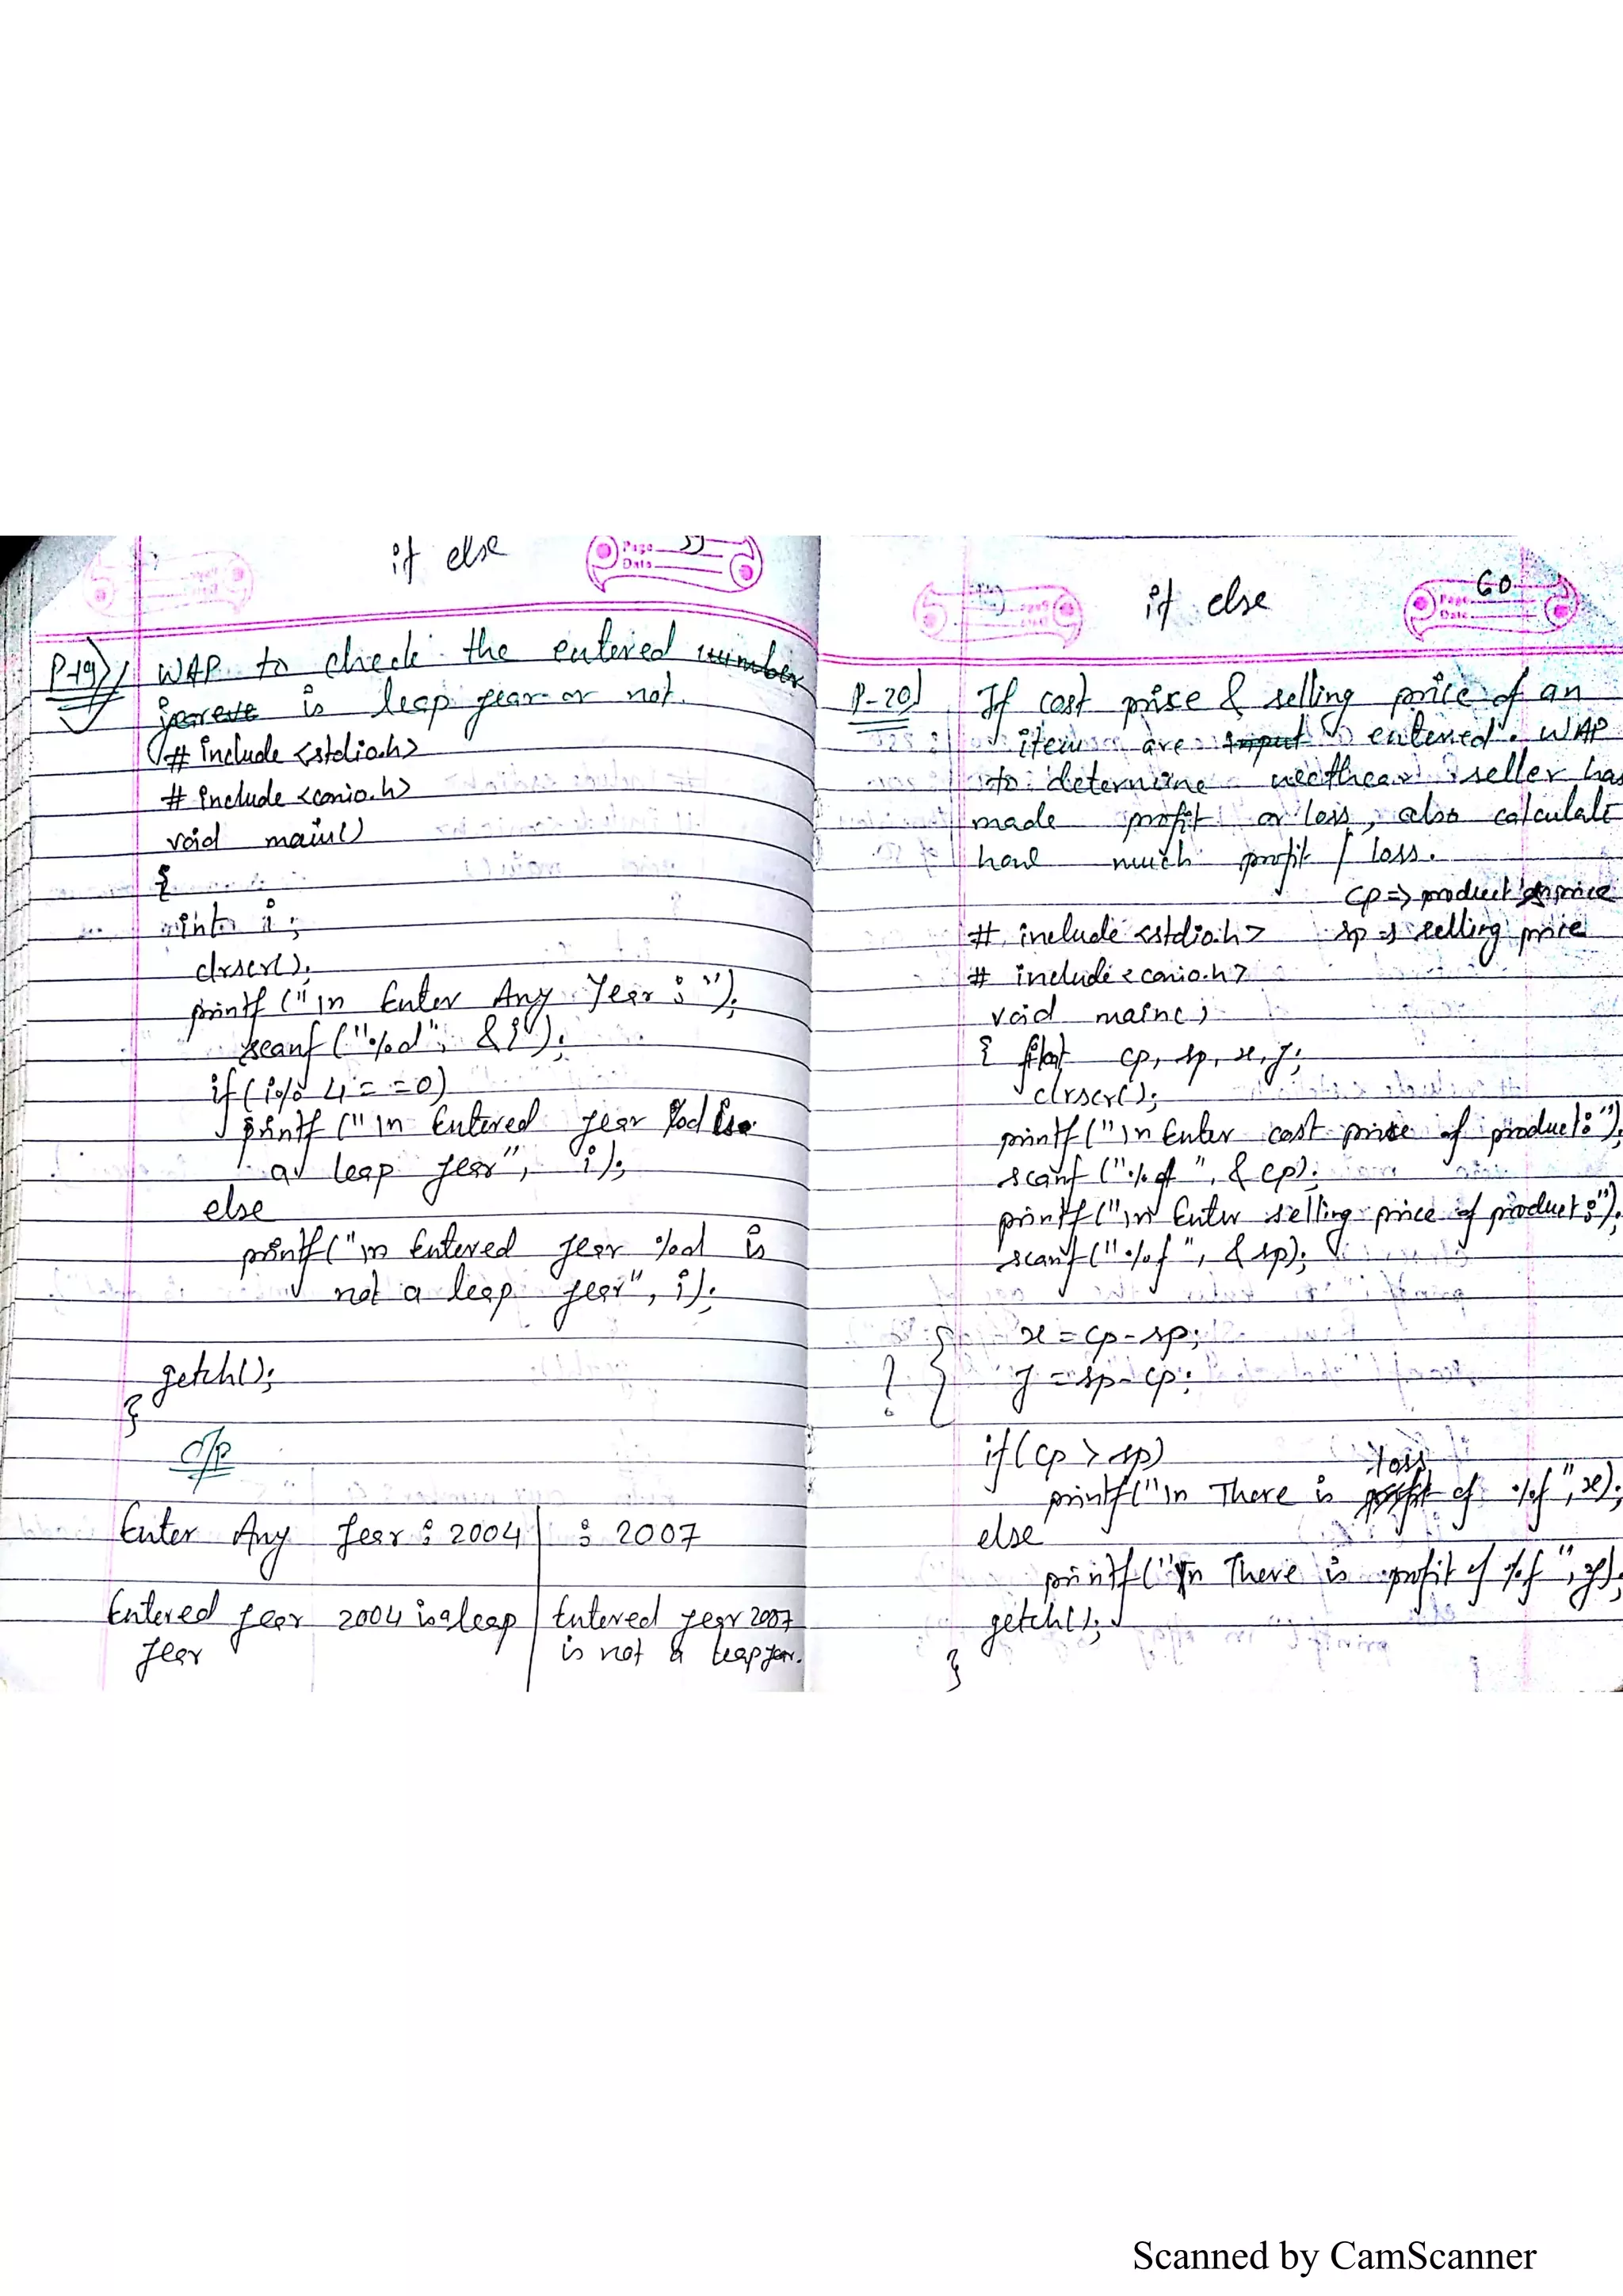 if else
Page
Date
P-19) WAP to check the entered number
is leap year or not.
# include <stdio.h>
# include <conio.h>
void main()
{
int i;
clrscr();
printf ("\n Enter Any Year : ");
scanf ("%d", &i);
if (i % 4 == 0)
printf ("\n Entered year %d is
a leap year", i);
else
printf ("\n Entered year %d is
not a leap year", i);
getch();
}
O/P
Enter Any Year : 2004 | : 2007
Entered year 2004 is a leap | Entered year 2007
year is not a leap year.
if else
Page 60
Date
P-20) If cost price & selling price of an
item are input entered. WAP
to determine seller has
made profit or loss, also calculate
how much profit / loss.
cp => product price
# include <stdio.h> sp => selling price
# include <conio.h>
void main()
{ float cp, sp, x, y;
clrscr();
printf ("\n Enter cost price of product:");
scanf ("%f", &cp);
printf ("\n Enter selling price of product:");
scanf ("%f", &sp);
x = cp - sp;
? } y = sp - cp;
if (cp > sp)
loss
printf ("\n There is profit of %f", x);
else
printf ("\n There is profit of %f", y);
getch();
}
Scanned by CamScanner